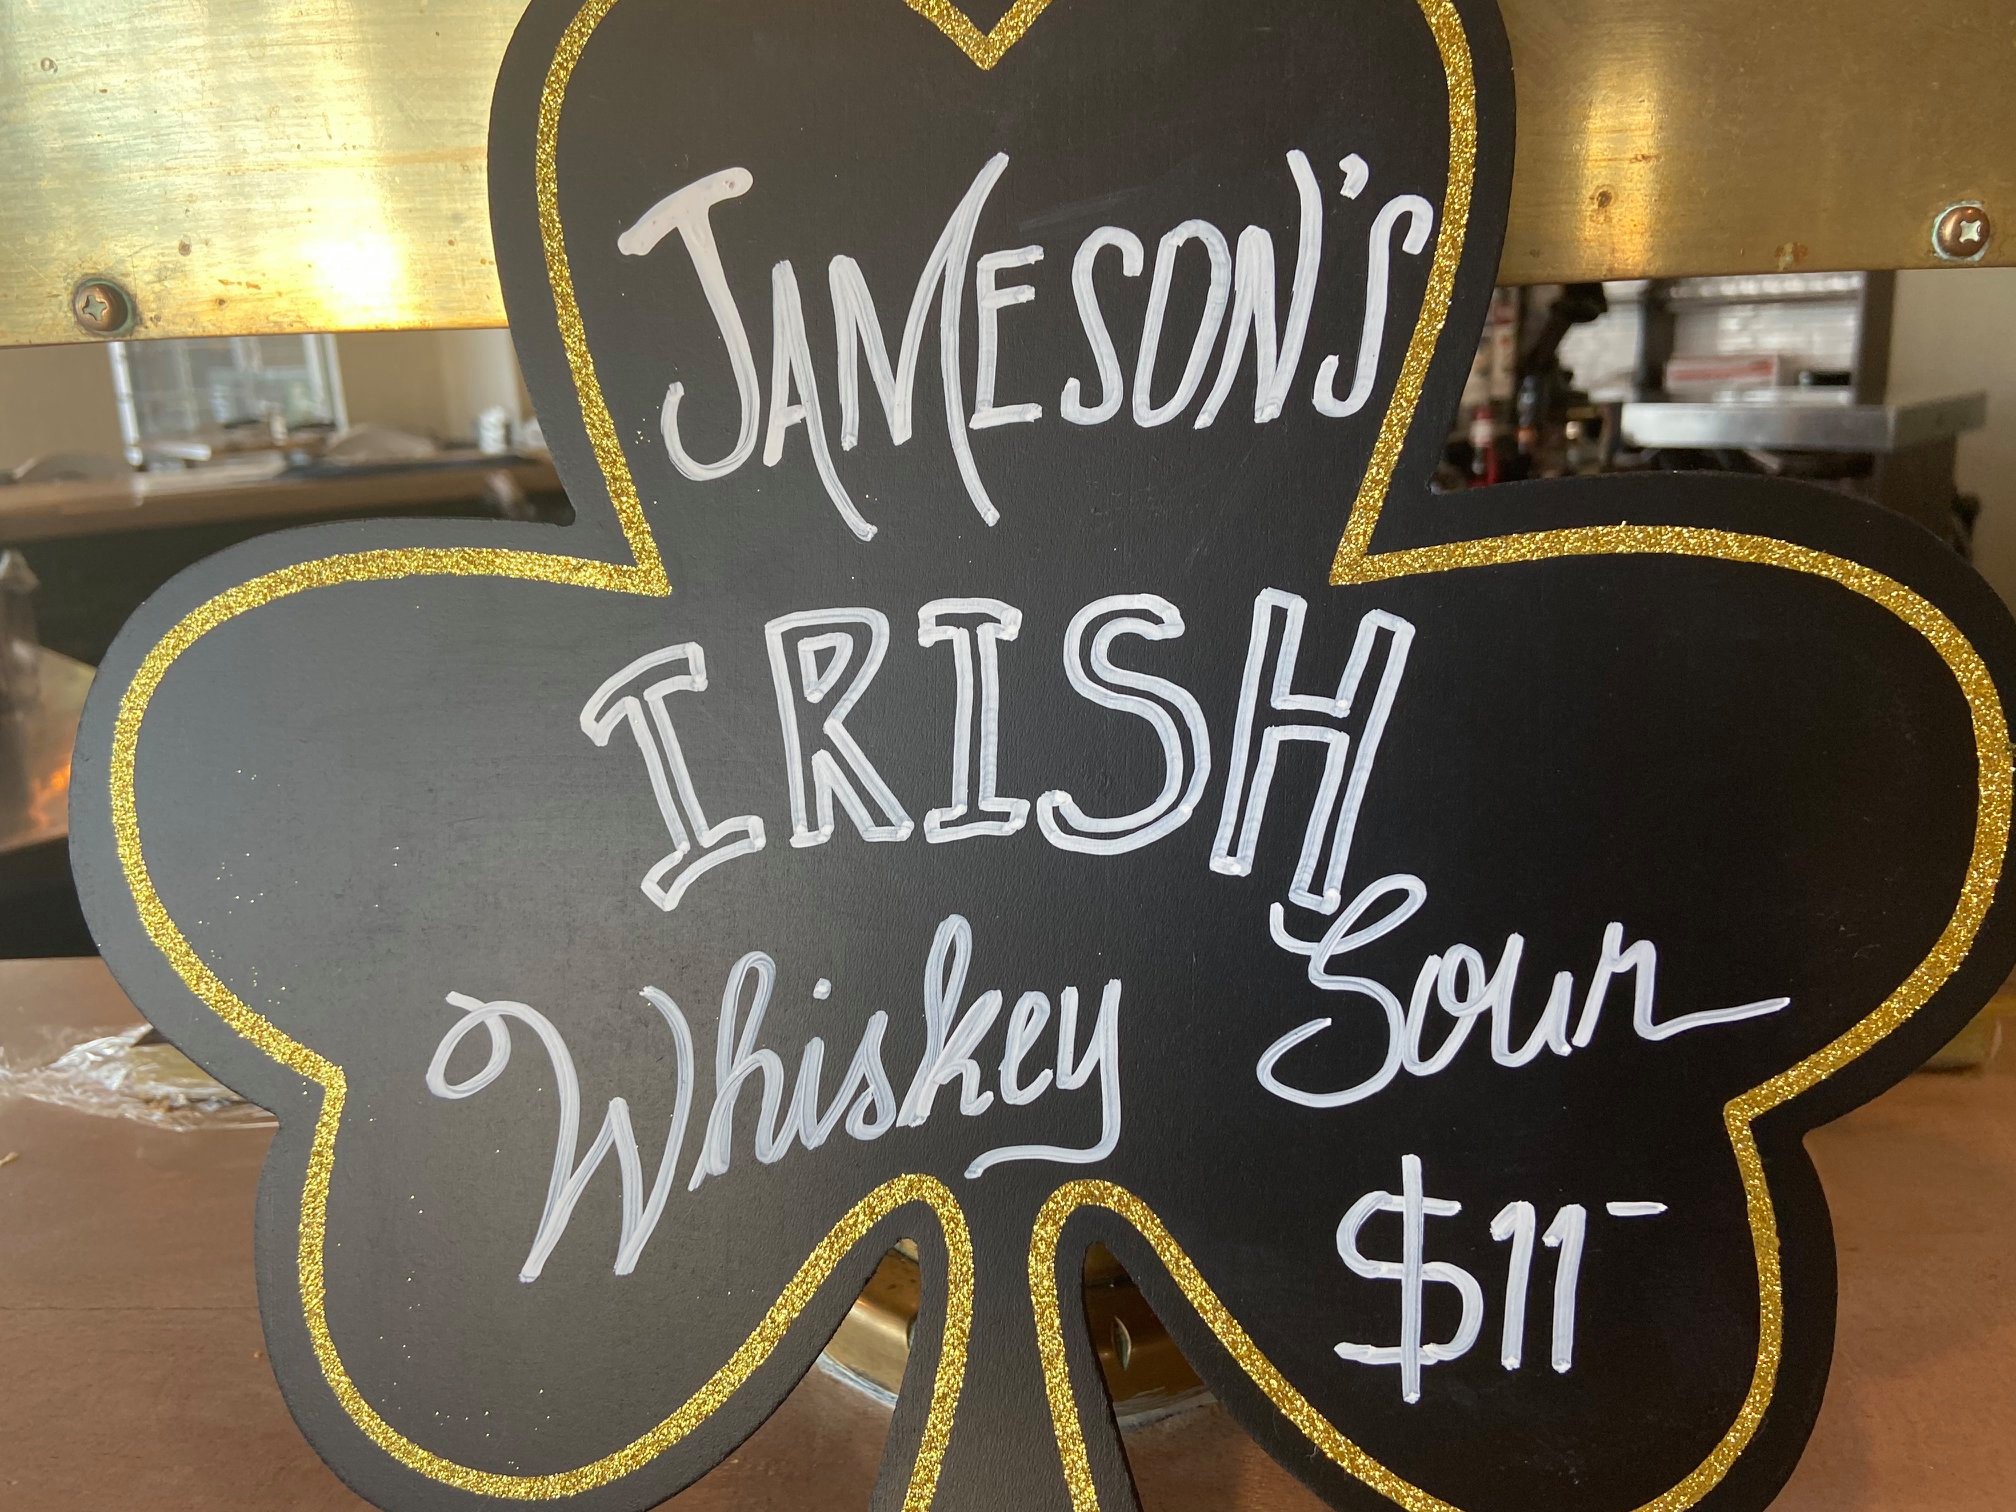 JAMESON'S
IRISH
Whiskey Sour
$11-